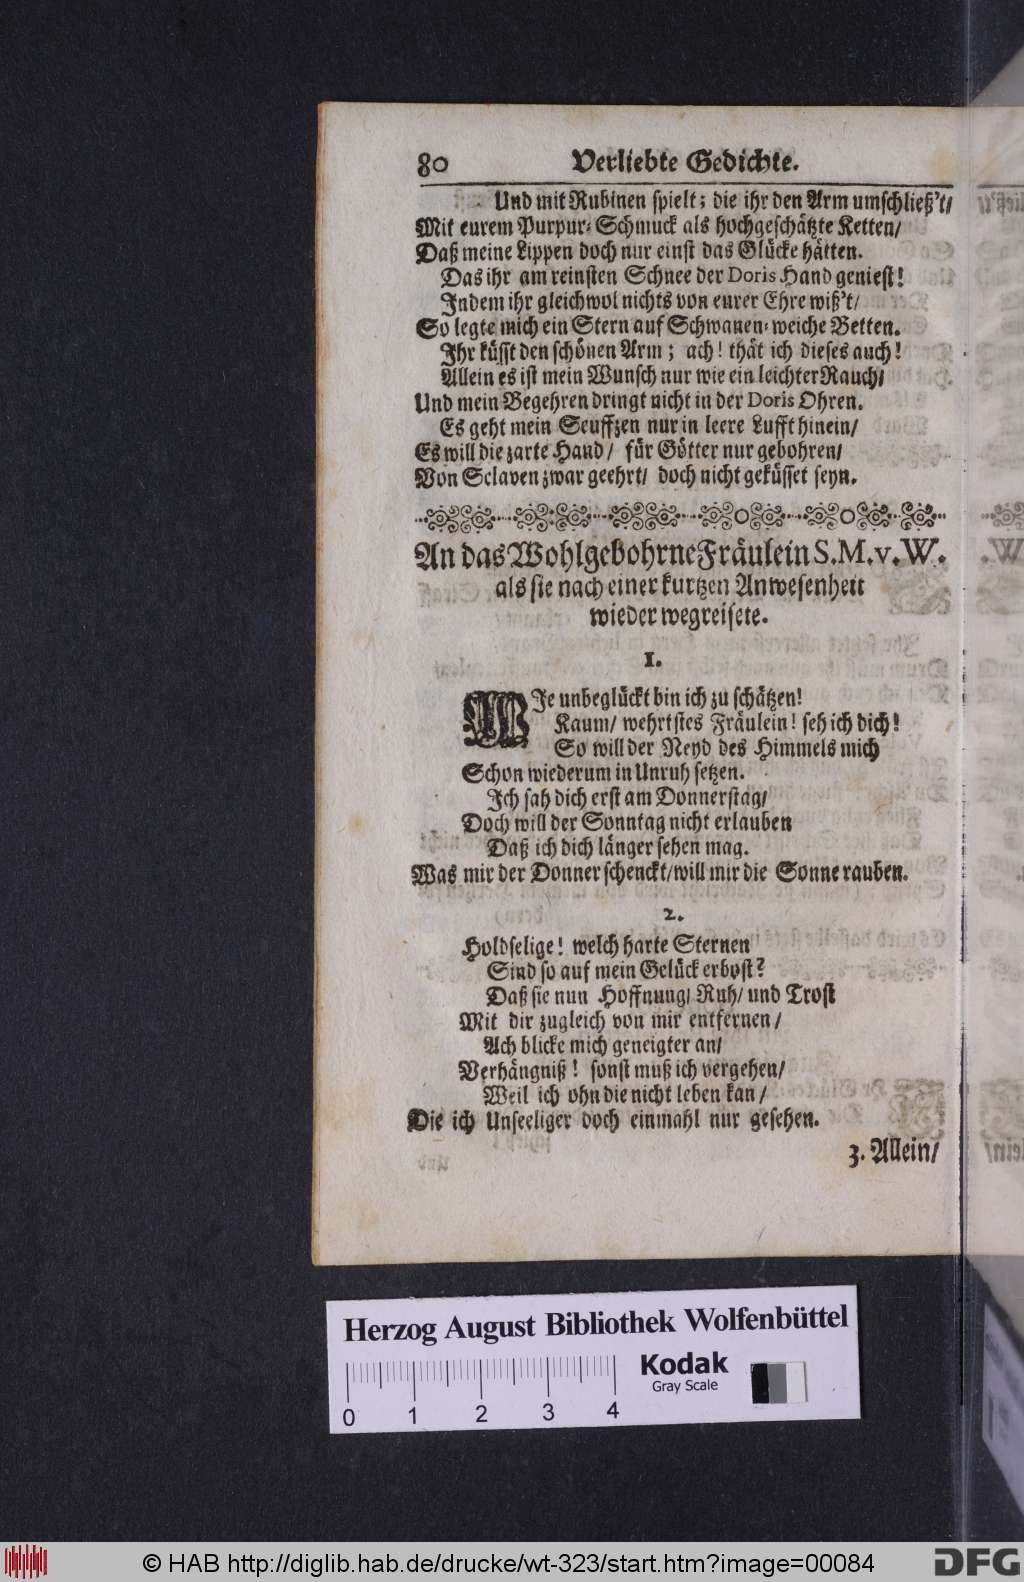 80 Verliebte Gedichte.
Und mit Rubinen spielt; die ihr den Arm umschließ't/
Mit eurem Purpur-Schmuck als hochgeschätzte Ketten/
Daß meine Lippen doch nur einst das Glücke hätten.
Das ihr am reinsten Schnee der Doris Hand geniest!
Indem ihr gleichwol nichts von eurer Ehre wiß't/
So legte mich ein Stern auf Schwanen-weiche Betten.
Ihr küsst den schönen Arm; ach! thät ich dieses auch!
Allein es ist mein Wunsch nur wie ein leichter Rauch/
Und mein Begehren dringt nicht in der Doris Ohren.
Es geht mein Seuffzen nur in leere Lufft hinein/
Es will die zarte Hand/ für Götter nur gebohren/
Von Sclaven zwar geehrt/ doch nicht geküsset seyn.
An das Wohlgebohrne Fräulein S. M. v. W.
als sie nach einer kurtzen Anwesenheit
wieder wegreisete.
1.
WIe unbeglückt bin ich zu schätzen!
Kaum/ wehrtstes Fräulein! seh ich dich!
So will der Neyd des Himmels mich
Schon wiederum in Unruh setzen.
Ich sah dich erst am Donnerstag/
Doch will der Sonntag nicht erlauben
Daß ich dich länger sehen mag.
Was mir der Donner schenckt/ will mir die Sonne rauben.
2.
Holdselige! welch harte Sternen
Sind so auf mein Gelück erbost?
Daß sie nun Hoffnung/ Ruh/ und Trost
Mit dir zugleich von mir entfernen/
Ach blicke mich geneigter an/
Verhängniß! sonst muß ich vergehen/
Weil ich ohn die nicht leben kan/
Die ich Unseeliger doch einmahl nur gesehen.
3. Allein/
Herzog August Bibliothek Wolfenbüttel
Kodak
Gray Scale
0 1 2 3 4
© HAB http://diglib.hab.de/drucke/wt-323/start.htm?image=00084
DFG